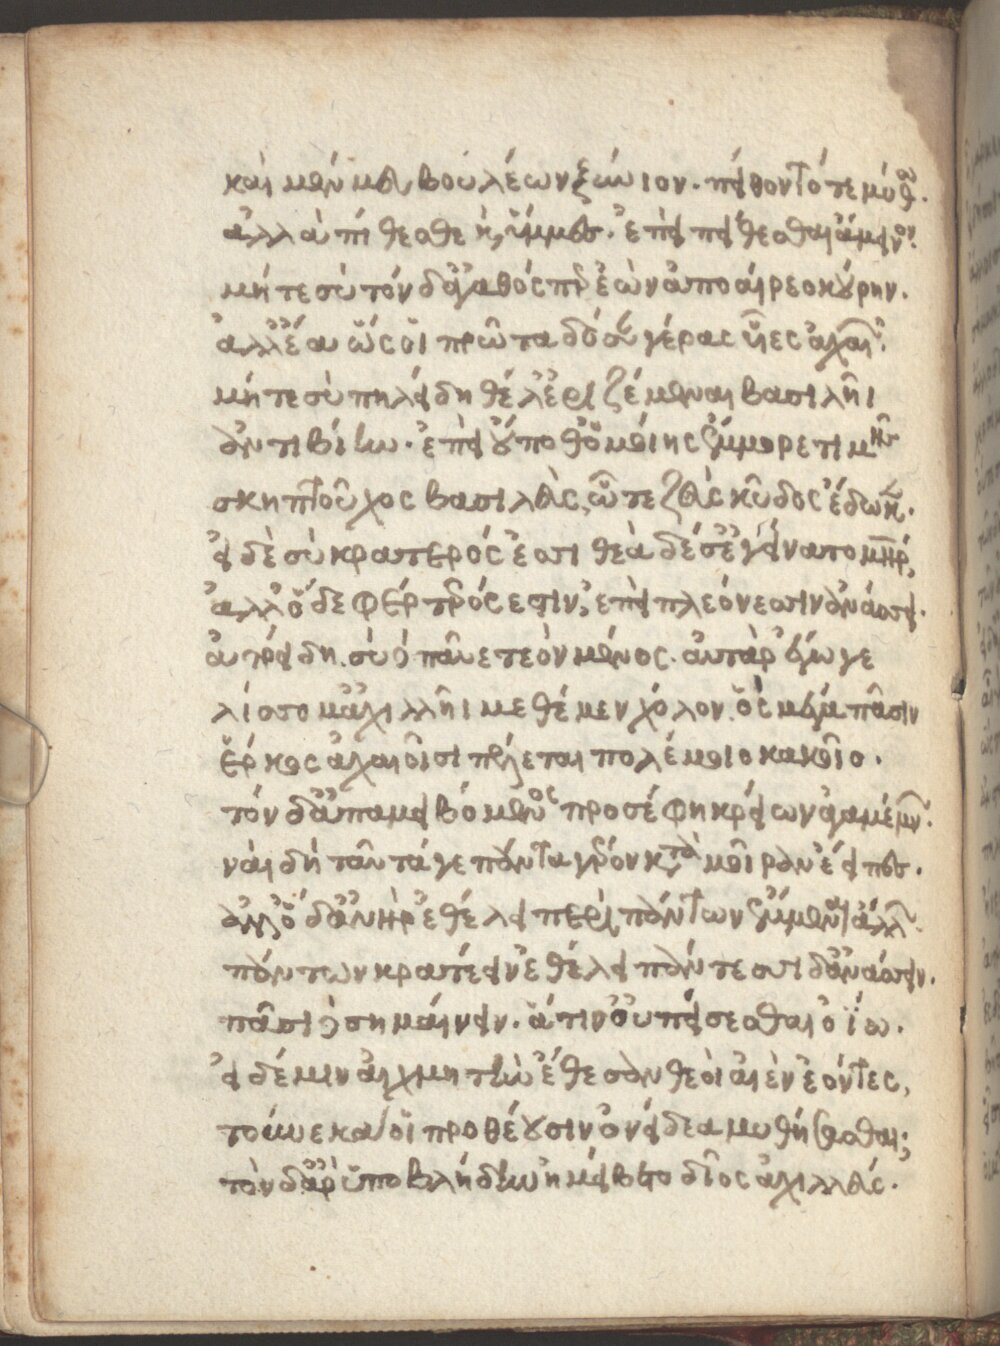 καὶ μὲν μευ βουλέων ξύνιον. πείθοντό τε μύθω.
ἀλλὰ πίθεσθε καὶ ὔμμες. ἐπεὶ πείθεσθαι ἄμεινον.
μήτε σὺ τόνδ' ἀγαθός περ ἐὼν ἀποαίρεο κούρην.
ἀλλ' ἔα ὥς οἱ πρῶτα δόσαν γέρας υἷες ἀχαιῶν.
μήτε σὺ πηλείδη θέλ' ἐριζέμεναι βασιλῆι
ἀντιβίην. ἐπεὶ οὔποθ' ὁμοίης ἔμμορε τιμῆς
σκηπτοῦχος βασιλεὺς, ὧτε ζεὺς κῦδος ἔδωκεν.
εἰ δὲ σὺ κρατερός ἐσσι θεὰ δέ σε γείνατο μήτηρ,
ἀλλ' ὅδε φέρτερός ἐστιν, ἐπεὶ πλεόνεσσιν ἀνάσσει.
ἀτρείδη. σὺ παῦε τεὸν μένος. αὐτὰρ ἔγωγε
λίσσομ' ἀχιλλῆι μεθέμεν χόλον. ὃς μέγα πᾶσιν
ἕρκος ἀχαιοῖσι πέλεται πολέμοιο κακοῖο.
τόνδ' ἀπαμειβόμενος προσέφη κρείων ἀγαμέμνων.
ναὶ δὴ ταῦτά γε πάντα γέρον κατὰ μοῖραν ἔειπες.
ἀλλ' ὅδ' ἀνὴρ ἐθέλει περὶ πάντων ἔμμεναι ἄλλων.
πάντων κρατέειν ἐθέλει πάντεσσι δ' ἀνάσσειν.
πᾶσι σημαίνειν. ἅτιν' οὐ πείσεσθαι ὀΐω.
εἰ δέ μιν αἰχμητὴν ἔθεσαν θεοὶ αἰὲν ἐόντες,
τούνεκα οἱ προθέουσιν ὀνείδεα μυθήσασθαι;
τὸν δ' ἄρ' ὑποβλήδην ἠμείβετο δῖος ἀχιλλεύς.